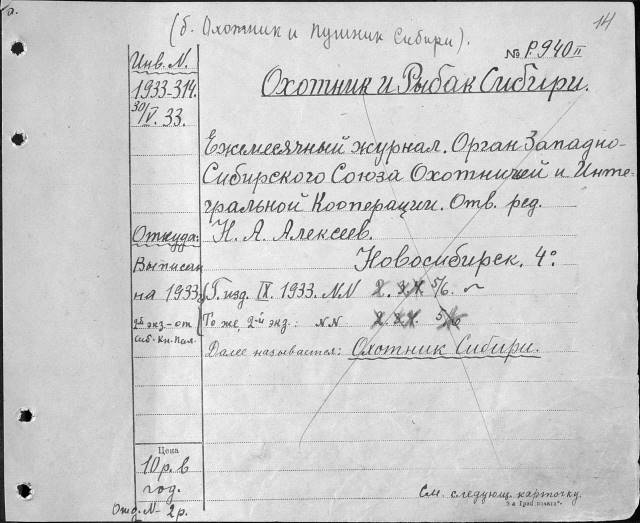 (б. Охотник и Пушник Сибири).
14
№ Р.940 II
Инв. N.
1933-314.
30/V. 33.
Охотник и Рыбак Сибири.
Ежемесячный журнал. Орган Западно-
Сибирского Союза Охотничей и Инте-
гральной Кооперации. Отв. ред.
Н. А. Алексеев.
Новосибирск. 4°.
Откуда:
Выписан
на 1933
2й экз-от
сиб-кн-пал.
Г. изд. IX. 1933. NN 5/6.
То же 2-й экз.: NN 5/6
Далее называется: Охотник Сибири.
Цена
10 р. в
год.
Отд. N - 2 р.
См. следующ. карточку.